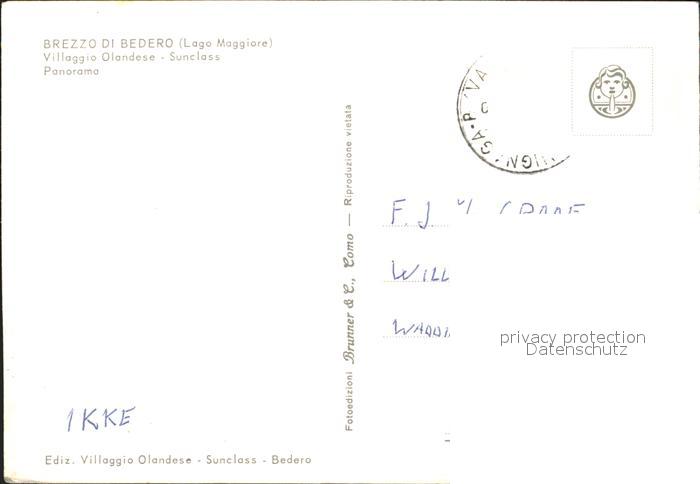 BREZZO DI BEDERO (Lago Maggiore)
Villaggio Olandese - Sunclass
Panorama
Fotoedizioni Brunner & C., Como — Riproduzione vietata
F. J.
WILL
WADDI
privacy protection
Datenschutz
IKKE
Ediz. Villaggio Olandese - Sunclass - Bedero